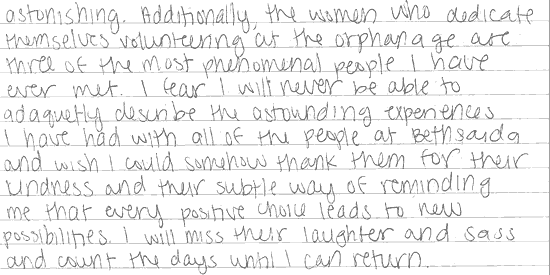 astonishing. Additionally, the women who dedicate
themselves volunteering at the orphanage are
three of the most phenomenal people I have
ever met. I fear I will never be able to
adaquetly describe the astounding experiences
I have had with all of the people at Bethsaida
and wish I could somehow thank them for their
kindness and their subtle way of reminding
me that every positive choice leads to new
possibilities. I will miss their laughter and sass
and count the days until I can return.